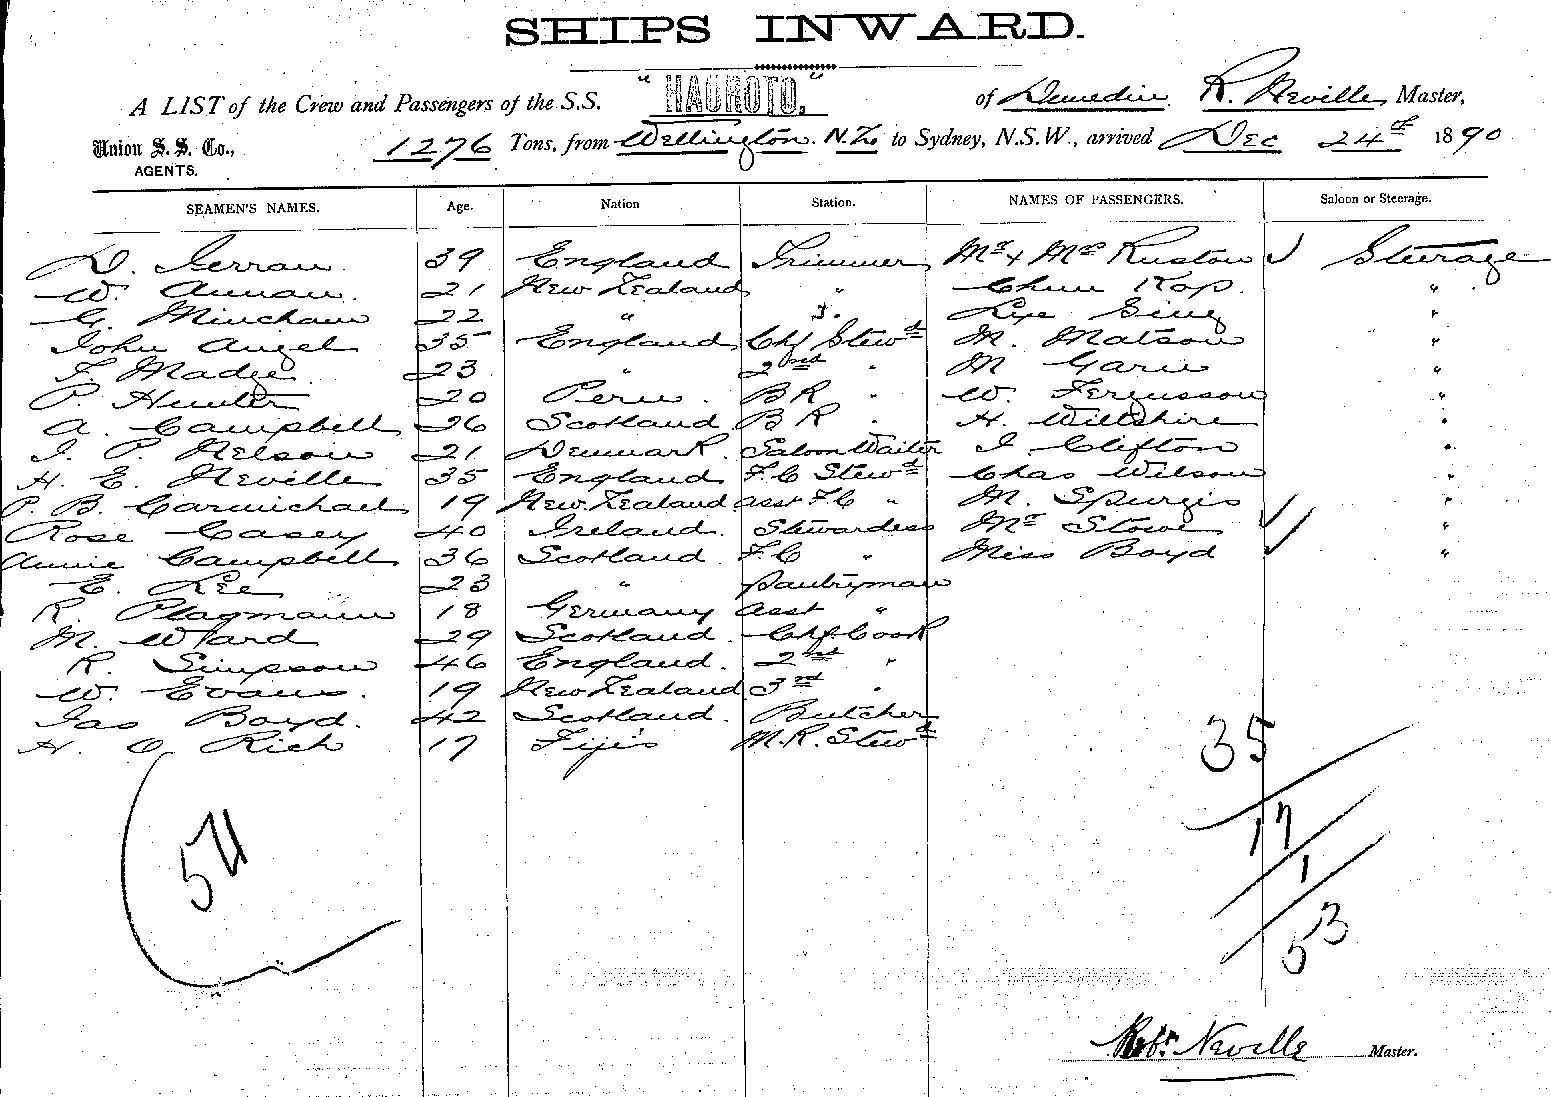 SHIPS INWARD.
A LIST of the Crew and Passengers of the S.S. "HAUROTO," of Dunedin R. Neville Master,
Union S. S. Co., AGENTS. 1276 Tons, from Wellington. N.Z. to Sydney, N.S.W., arrived Dec 24th 1890
SEAMEN'S NAMES. Age. Nation Station. NAMES OF PASSENGERS. Saloon or Steerage.
D. 39 England Trimmer Mr & Mrs Ruston Steerage
W. Annan. 21 New Zealand " Chun Kop. "
G. Mincham 22 " Lye Sing "
John Angel 35 England Chf Stewd M. Matson "
F. Madge 23 " 2nd " M "
P. Hunter 20 Peru. BR " W. Fergusson "
A. Campbell 26 Scotland BR " H. Willshire "
J. P. Nelson 21 Denmark. Saloon Waiter J. Clifton "
H. E. Neville 35 England F.C Stewd Chas Wilson "
P. B. Carmichael 19 New Zealand asst F.C " M. Spurgis "
Rose Casey 40 Ireland. Stewardess Mr Stowe "
Annie Campbell 36 Scotland F.C " Miss Boyd "
E. Lee 23 " Pantryman
R. Plagmann 18 Germany asst "
M. Ward 29 Scotland. Chf Cook
R. Simpson 46 England. 2nd "
W. Evans. 19 New Zealand 3rd "
Jas Boyd. 42 Scotland. Butcher
H. O. Rich 17 Fiji's M.R. Stewd
35
17
1
54
53
Robt Neville Master.